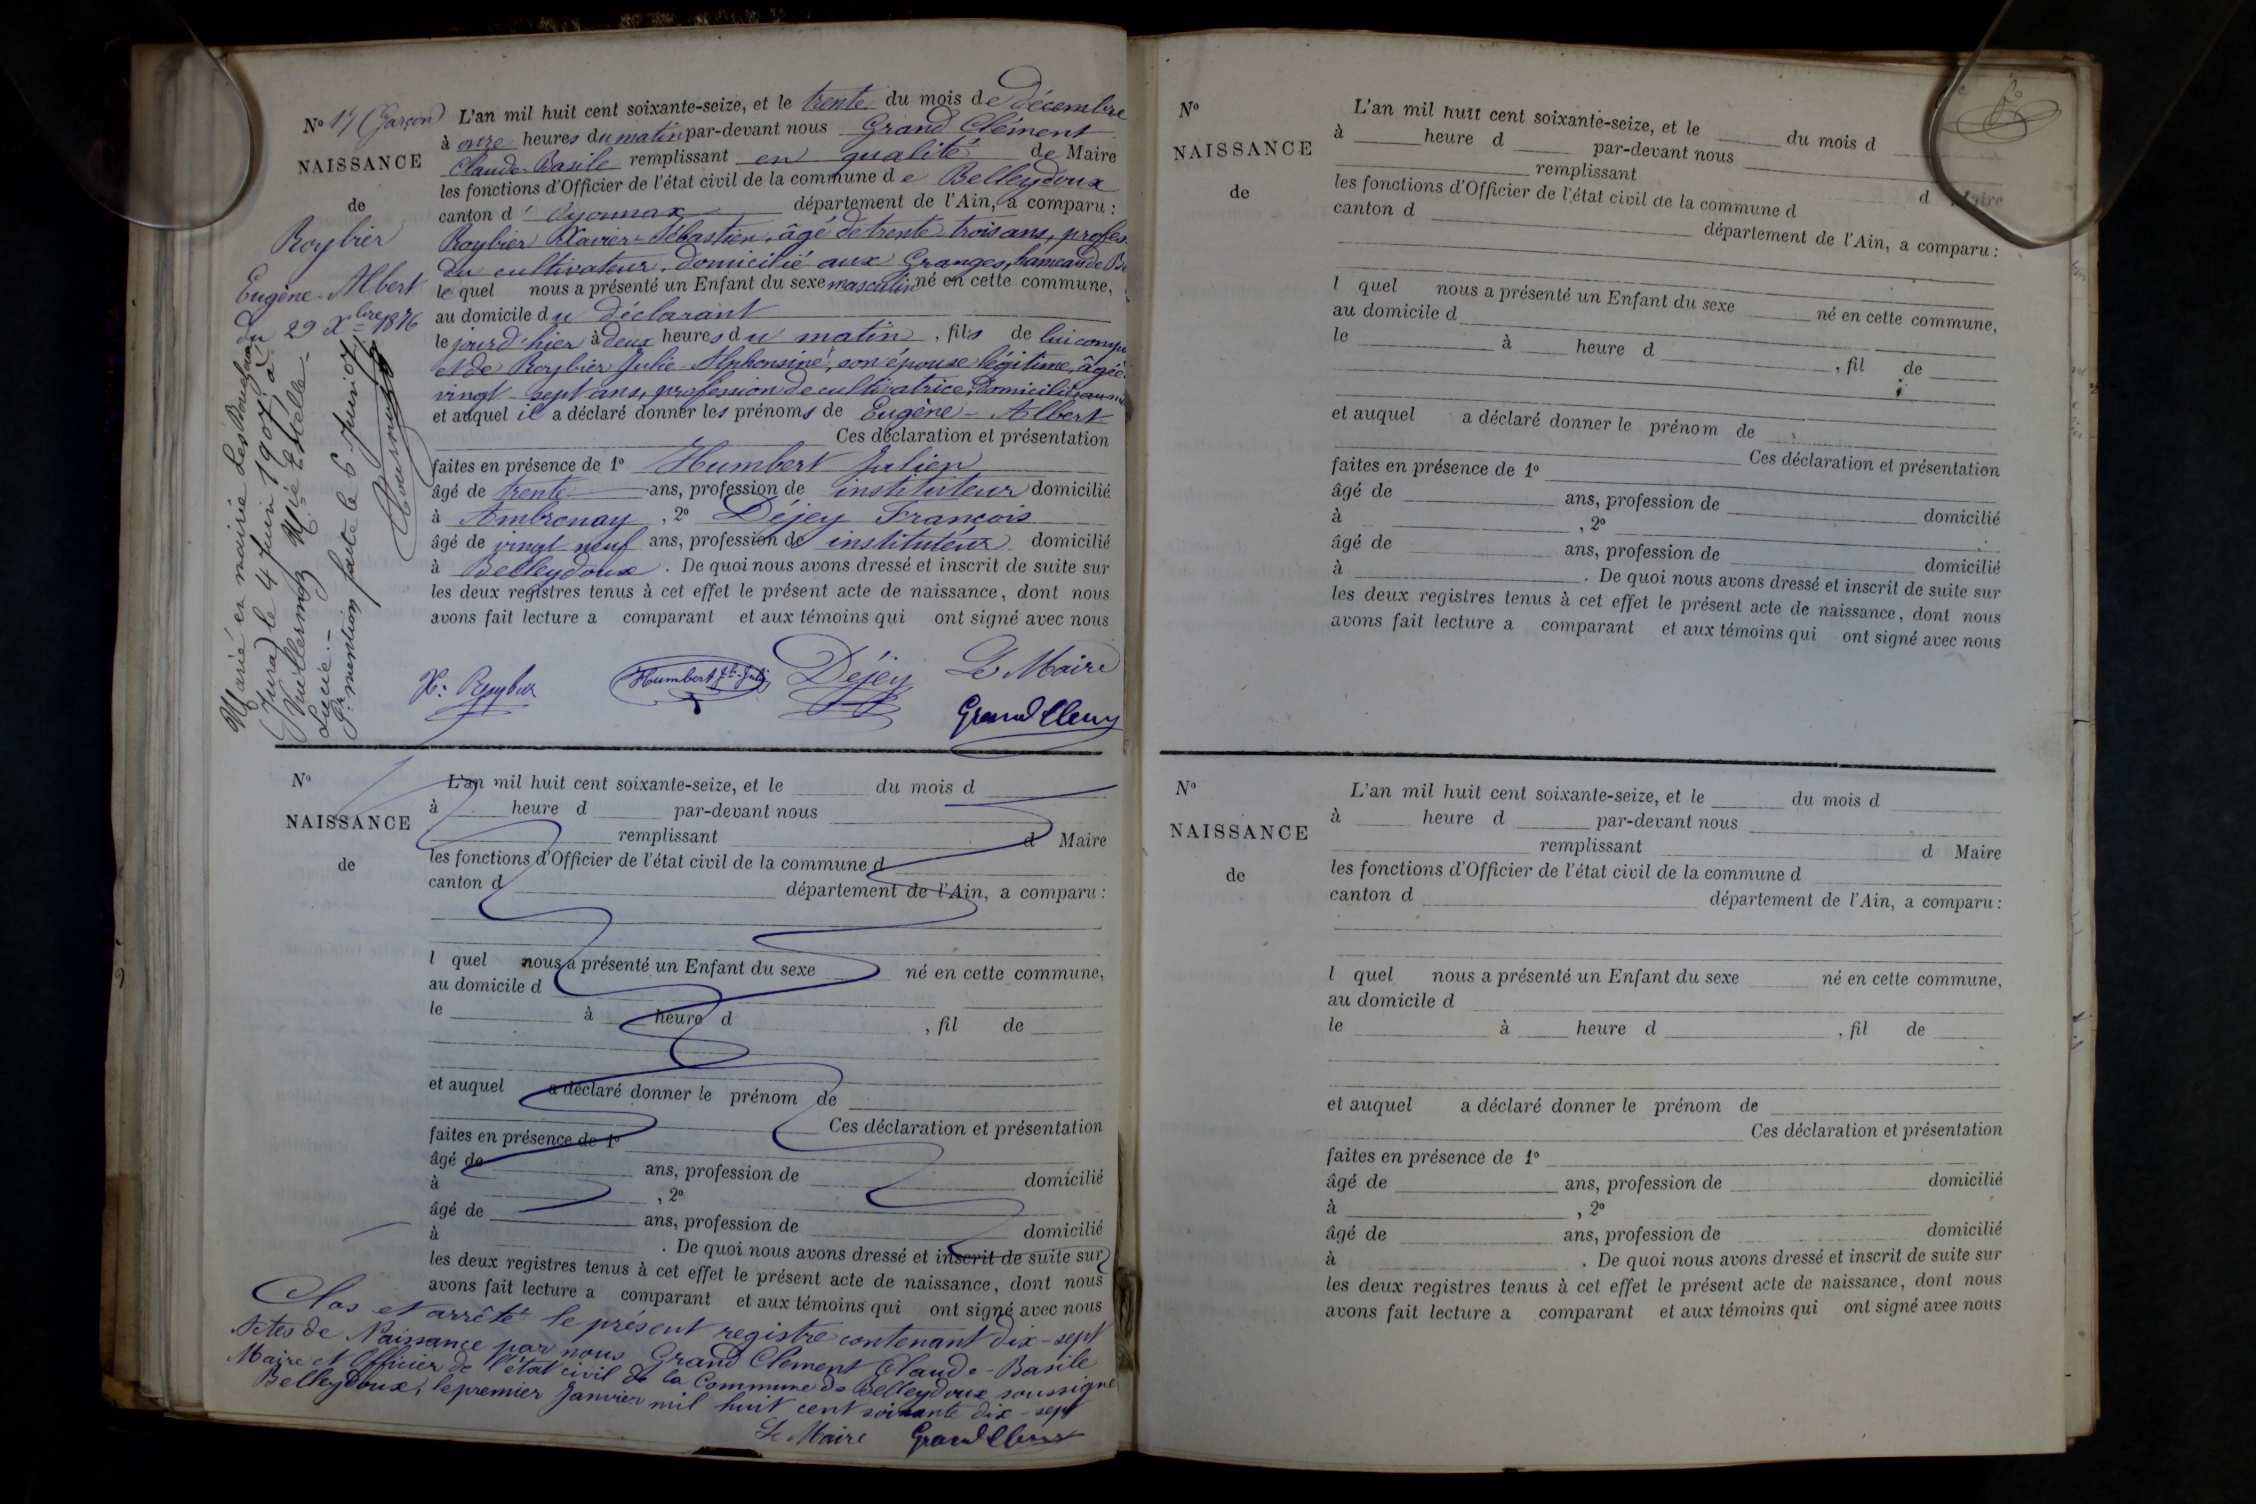 Nº 17 (Garçon)
NAISSANCE
de
Roybier
Eugène-Albert
du 29 Xbre 1876
Marié en mairie Les Bouchoux
(Jura) le 4 Juin 1907 à
Vuillermoz Mie Estelle-
Lucie.-
Pr mention faite le 6 Juin 07
L'an mil huit cent soixante-seize, et le trente du mois de décembre
à onze heures du matin par-devant nous Grand Clément
Claude-Basile remplissant en qualité de Maire
les fonctions d'Officier de l'état civil de la commune de Belleydoux
canton d'Oyonnax département de l'Ain, a comparu :
Roybier Xavier-Sébastien, âgé de trente trois ans, profes
du cultivateur, domicilié aux Granges, hameau de Be
lequel nous a présenté un Enfant du sexe masculin né en cette commune,
au domicile du déclarant
le jour d'hier à deux heures du matin, fils de lui comp
et de Roybier Julie-Alphonsine, son épouse légitime, âgée
vingt-sept ans, profession de cultivatrice, domiciliée au
et auquel il a déclaré donner les prénoms de Eugène-Albert
Ces déclaration et présentation
faites en présence de 1º Humbert Julien
âgé de trente ans, profession de instituteur domicilié
à Ambronay, 2º Déjey François
âgé de vingt neuf ans, profession de instituteur domicilié
à Belleydoux. De quoi nous avons dressé et inscrit de suite sur
les deux registres tenus à cet effet le présent acte de naissance, dont nous
avons fait lecture a comparant et aux témoins qui ont signé avec nous
X: Roybier Humbert Déjey Le Maire
Grand Clément
Nº
NAISSANCE
de
L'an mil huit cent soixante-seize, et le du mois d
à heure d par-devant nous
remplissant d Maire
les fonctions d'Officier de l'état civil de la commune d
canton d département de l'Ain, a comparu :
l quel nous a présenté un Enfant du sexe né en cette commune,
au domicile d
le à heure d , fil de
et auquel a déclaré donner le prénom de
Ces déclaration et présentation
faites en présence de 1º
âgé de ans, profession de domicilié
à , 2º
âgé de ans, profession de domicilié
à . De quoi nous avons dressé et inscrit de suite sur
les deux registres tenus à cet effet le présent acte de naissance, dont nous
avons fait lecture a comparant et aux témoins qui ont signé avec nous
Clos et arrêté le présent registre contenant dix-sept
Actes de Naissance par nous Grand Clément Claude-Basile
Maire et Officier de l'état civil de la Commune de Belleydoux soussigné
Belleydoux, le premier Janvier mil huit cent soixante dix-sept
Le Maire Grand Clément
Nº
NAISSANCE
de
L'an mil huit cent soixante-seize, et le du mois d
à heure d par-devant nous
remplissant d Maire
les fonctions d'Officier de l'état civil de la commune d
canton d département de l'Ain, a comparu :
l quel nous a présenté un Enfant du sexe né en cette commune,
au domicile d
le à heure d , fil de
et auquel a déclaré donner le prénom de
Ces déclaration et présentation
faites en présence de 1º
âgé de ans, profession de domicilié
à , 2º
âgé de ans, profession de domicilié
à . De quoi nous avons dressé et inscrit de suite sur
les deux registres tenus à cet effet le présent acte de naissance, dont nous
avons fait lecture a comparant et aux témoins qui ont signé avec nous
Nº
NAISSANCE
de
L'an mil huit cent soixante-seize, et le du mois d
à heure d par-devant nous
remplissant d Maire
les fonctions d'Officier de l'état civil de la commune d
canton d département de l'Ain, a comparu :
l quel nous a présenté un Enfant du sexe né en cette commune,
au domicile d
le à heure d , fil de
et auquel a déclaré donner le prénom de
Ces déclaration et présentation
faites en présence de 1º
âgé de ans, profession de domicilié
à , 2º
âgé de ans, profession de domicilié
à . De quoi nous avons dressé et inscrit de suite sur
les deux registres tenus à cet effet le présent acte de naissance, dont nous
avons fait lecture a comparant et aux témoins qui ont signé avec nous